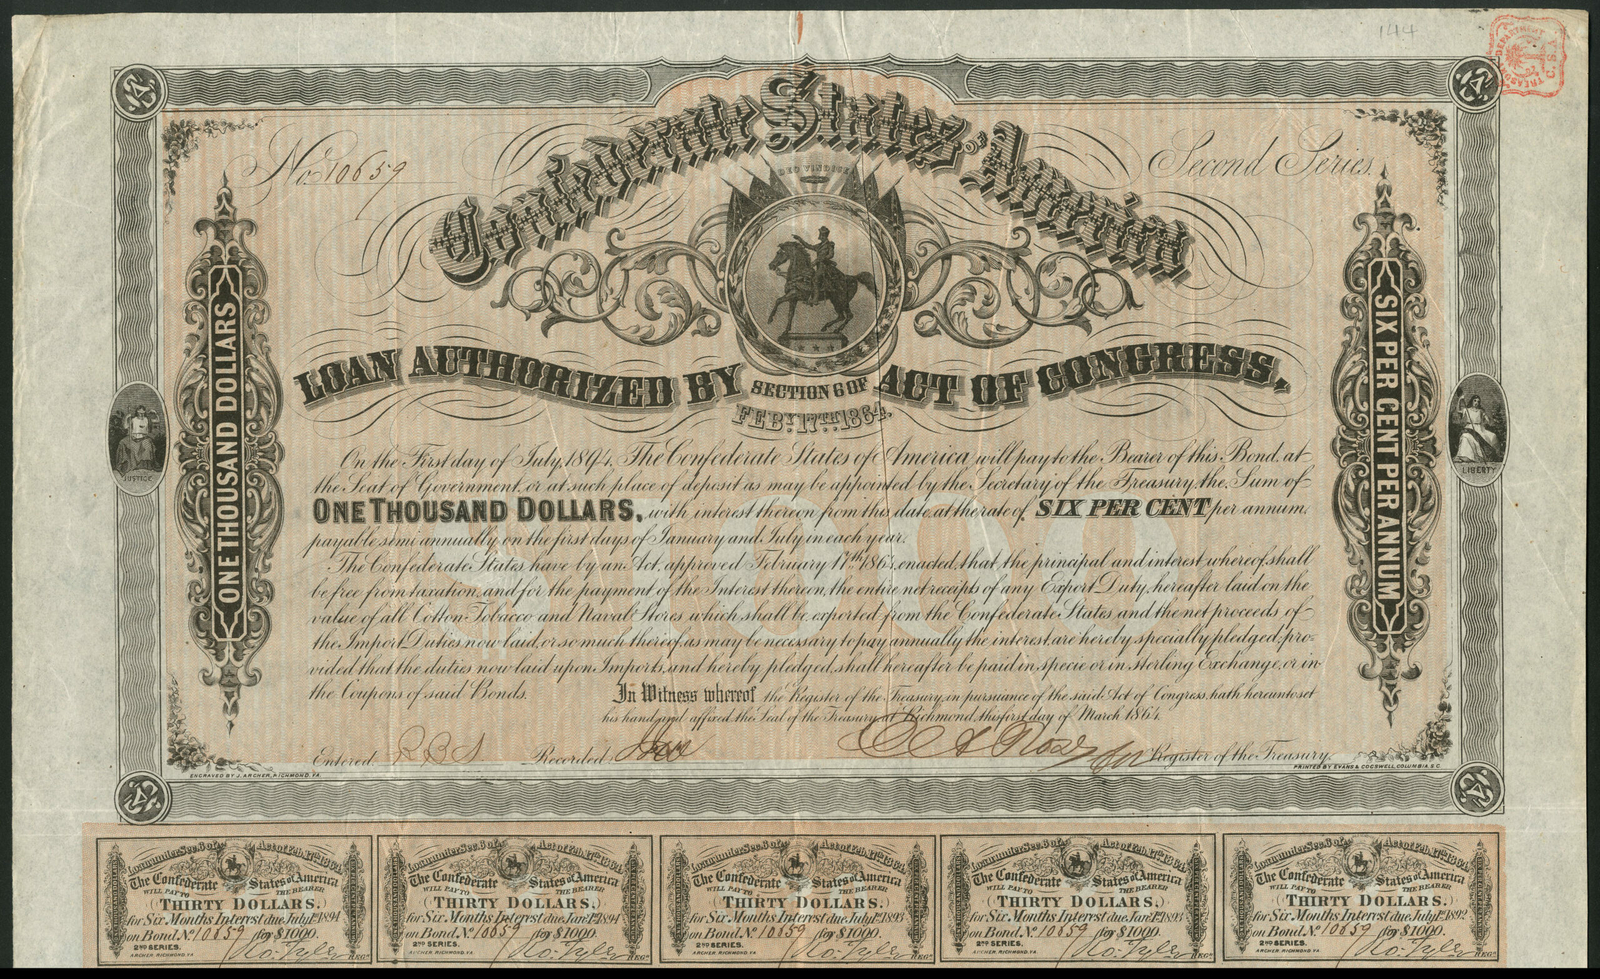 144
TREASURY DEPARTMENT C.S.A.
Confederate States of America
No. 10659
Second Series.
DEO VINDICE
LOAN AUTHORIZED BY SECTION 6 OF ACT OF CONGRESS,
FEBY. 17TH. 1864.
ONE THOUSAND DOLLARS
SIX PER CENT PER ANNUM
JUSTICE
LIBERTY
$1000
On the First day of July, 1894, The Confederate States of America, will pay to the Bearer of this Bond, at
the Seat of Government, or at such place of deposit as may be appointed by the Secretary of the Treasury, the Sum of
ONE THOUSAND DOLLARS, with interest thereon from this date, at the rate of SIX PER CENT per annum,
payable semi annually on the first days of January and July in each year.
The Confederate States have by an Act, approved February 17th 1864, enacted, that the principal and interest whereof shall
be free from taxation, and for the payment of the Interest thereon, the entire net receipts of any Export Duty, hereafter laid on the
value of all Cotton, Tobacco and Naval Stores which shall be exported from the Confederate States, and the net proceeds of
the Import Duties now laid, or so much thereof as may be necessary to pay annually the interest, are hereby specially pledged: pro-
vided that the duties now laid upon Imports, and hereby pledged, shall hereafter be paid in specie or in sterling Exchange, or in
the Coupons of said Bonds. In Witness whereof the Register of the Treasury, in pursuance of the said Act of Congress, hath hereunto set
his hand and affixed the Seal of the Treasury at Richmond, this first day of March 1864.
Entered Recorded Register of the Treasury.
ENGRAVED BY J. ARCHER, RICHMOND, VA.
PRINTED BY EVANS & COGSWELL, COLUMBIA, S.C.
Loan under Sec. 6 of Act of Feb. 17th 1864
The Confederate States of America
WILL PAY TO THE BEARER
THIRTY DOLLARS,
for Six Months Interest due July 1st 1894
on Bond No. 10659 for $1000.
2ND SERIES.
Ro. Tyler REGR.
ARCHER, RICHMOND, VA
Loan under Sec. 6 of Act of Feb. 17th 1864
The Confederate States of America
WILL PAY TO THE BEARER
THIRTY DOLLARS,
for Six Months Interest due Jany 1st 1894
on Bond No. 10659 for $1000.
2ND SERIES.
Ro. Tyler REGR.
ARCHER, RICHMOND, VA
Loan under Sec. 6 of Act of Feb. 17th 1864
The Confederate States of America
WILL PAY TO THE BEARER
THIRTY DOLLARS,
for Six Months Interest due July 1st 1893
on Bond No. 10659 for $1000.
2ND SERIES.
Ro. Tyler REGR.
ARCHER, RICHMOND, VA
Loan under Sec. 6 of Act of Feb. 17th 1864
The Confederate States of America
WILL PAY TO THE BEARER
THIRTY DOLLARS,
for Six Months Interest due Jany 1st 1893
on Bond No. 10659 for $1000.
2ND SERIES.
Ro. Tyler REGR.
ARCHER, RICHMOND, VA
Loan under Sec. 6 of Act of Feb. 17th 1864
The Confederate States of America
WILL PAY TO THE BEARER
THIRTY DOLLARS,
for Six Months Interest due July 1st 1892
on Bond No. 10659 for $1000.
2ND SERIES.
Ro. Tyler REGR.
ARCHER, RICHMOND, VA